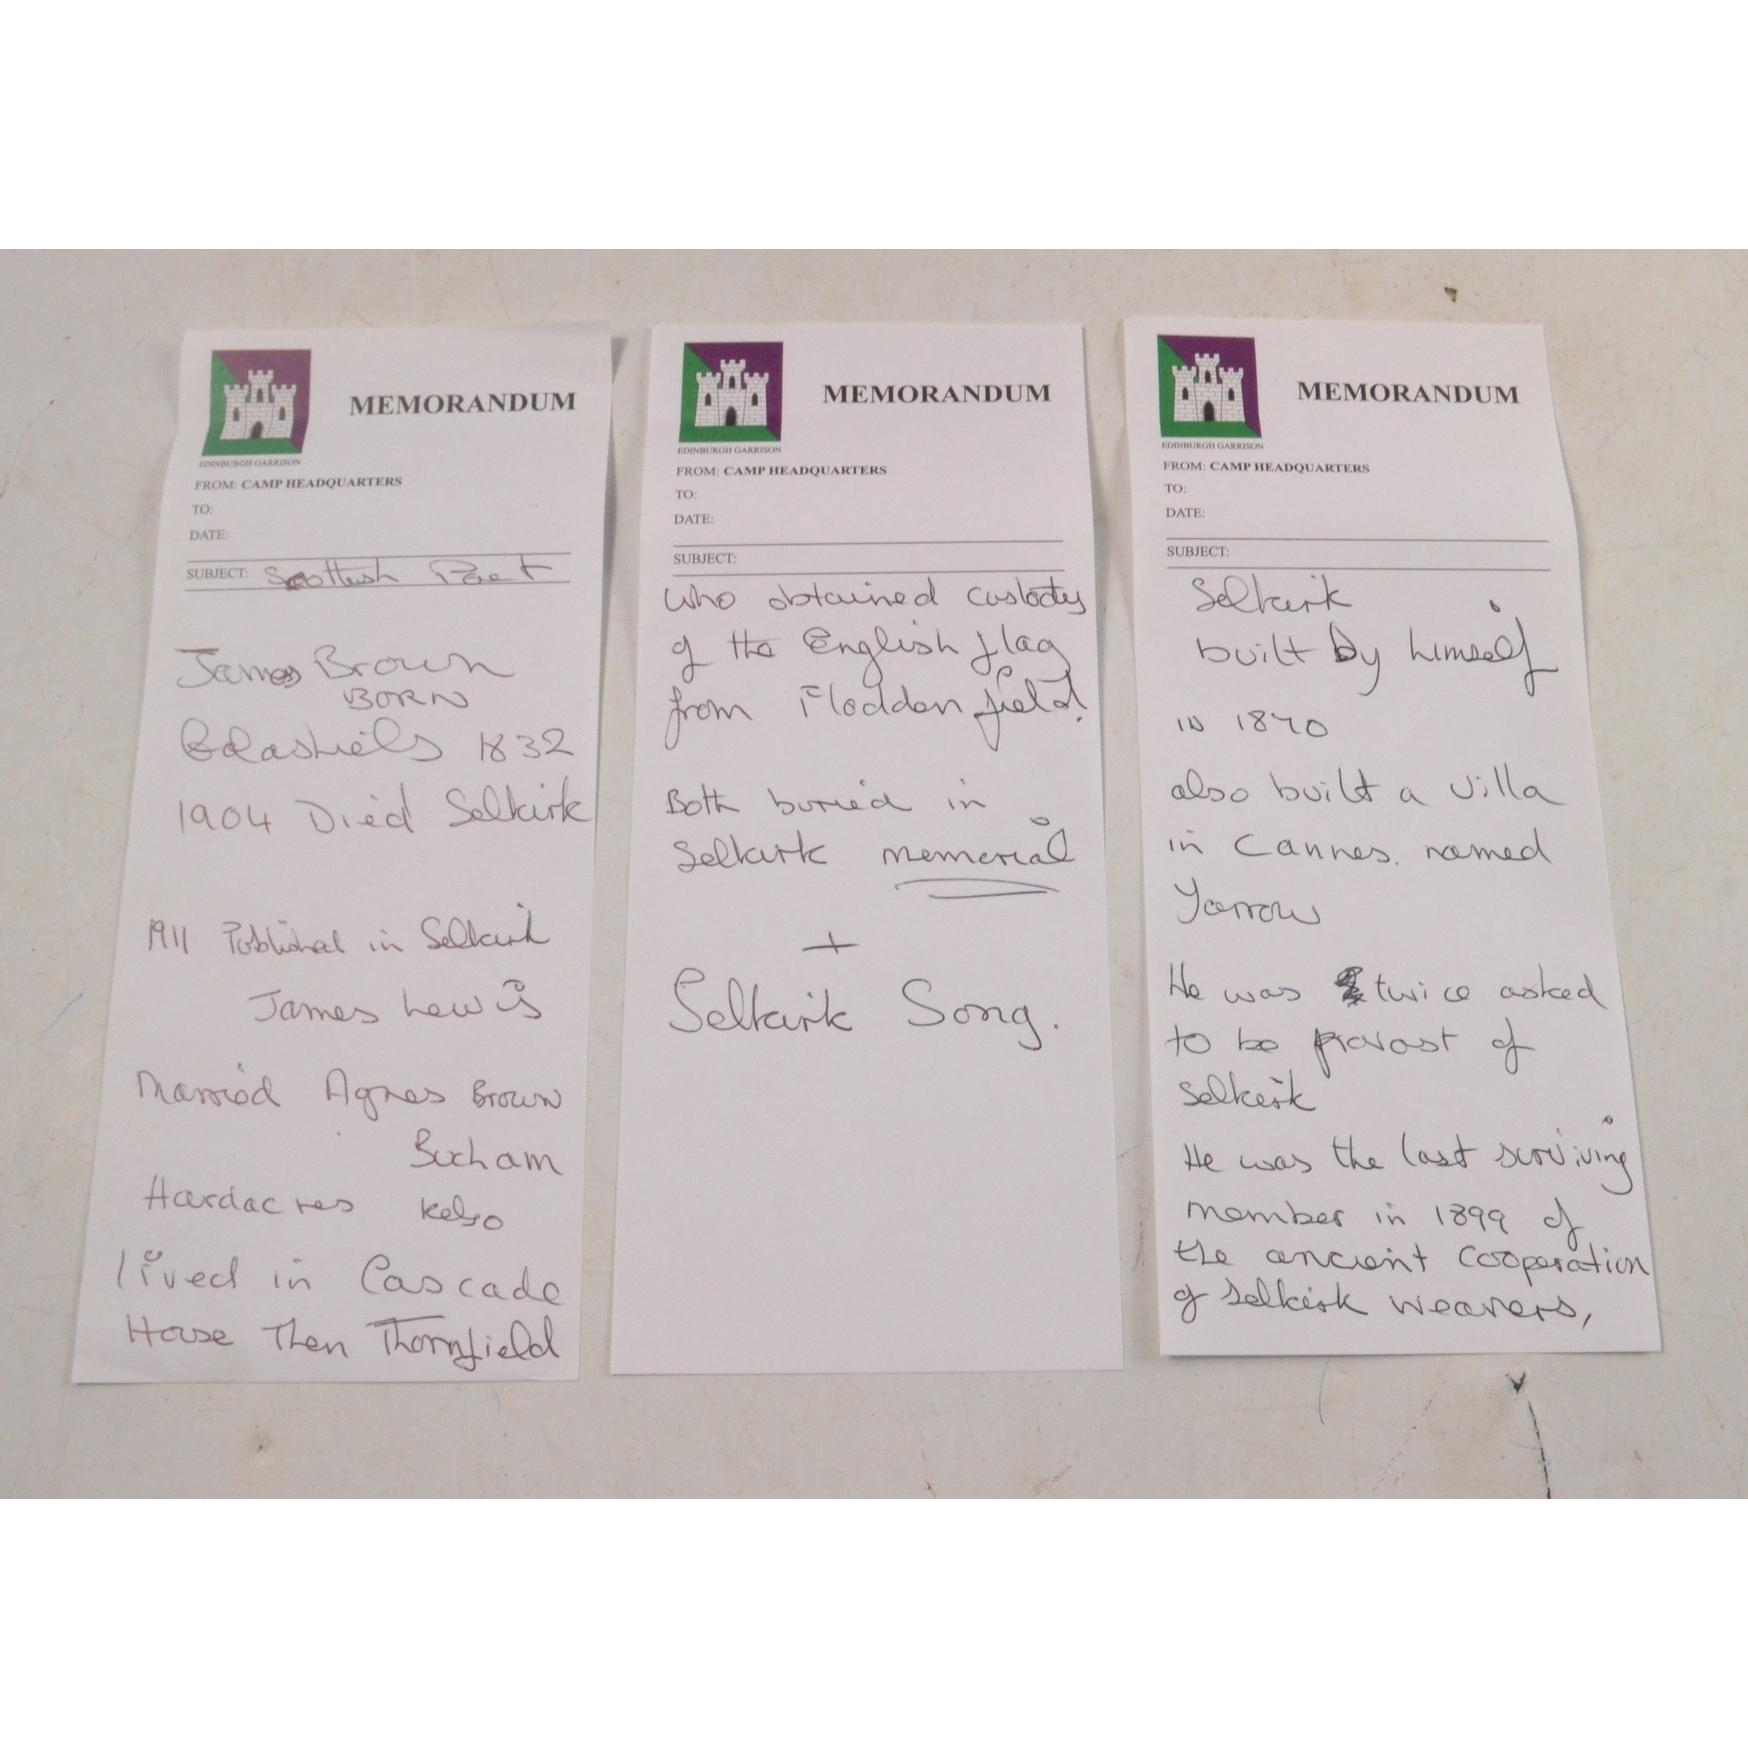 EDINBURGH GARRISON
MEMORANDUM
FROM: CAMP HEADQUARTERS
TO:
DATE:
SUBJECT: Scottish Poet
James Brown
BORN
Galashiels 1832
1904 Died Selkirk
1911 Published in Selkirk
James Lewis
Married Agnes Brown
Bucham
Hardacres Kelso
lived in Cascade
House Then Thornfield
EDINBURGH GARRISON
MEMORANDUM
FROM: CAMP HEADQUARTERS
TO:
DATE:
SUBJECT:
who obtained custody
of the English flag
from Flodden field.
Both buried in
Selkirk memorial
+
Selkirk Song.
EDINBURGH GARRISON
MEMORANDUM
FROM: CAMP HEADQUARTERS
TO:
DATE:
SUBJECT:
Selkirk
built by himself
in 1870
also built a villa
in Cannes. named
Yarrow
He was twice asked
to be provost of
Selkirk
He was the last surviving
member in 1899 of
the ancient cooperation
of Selkirk weavers,